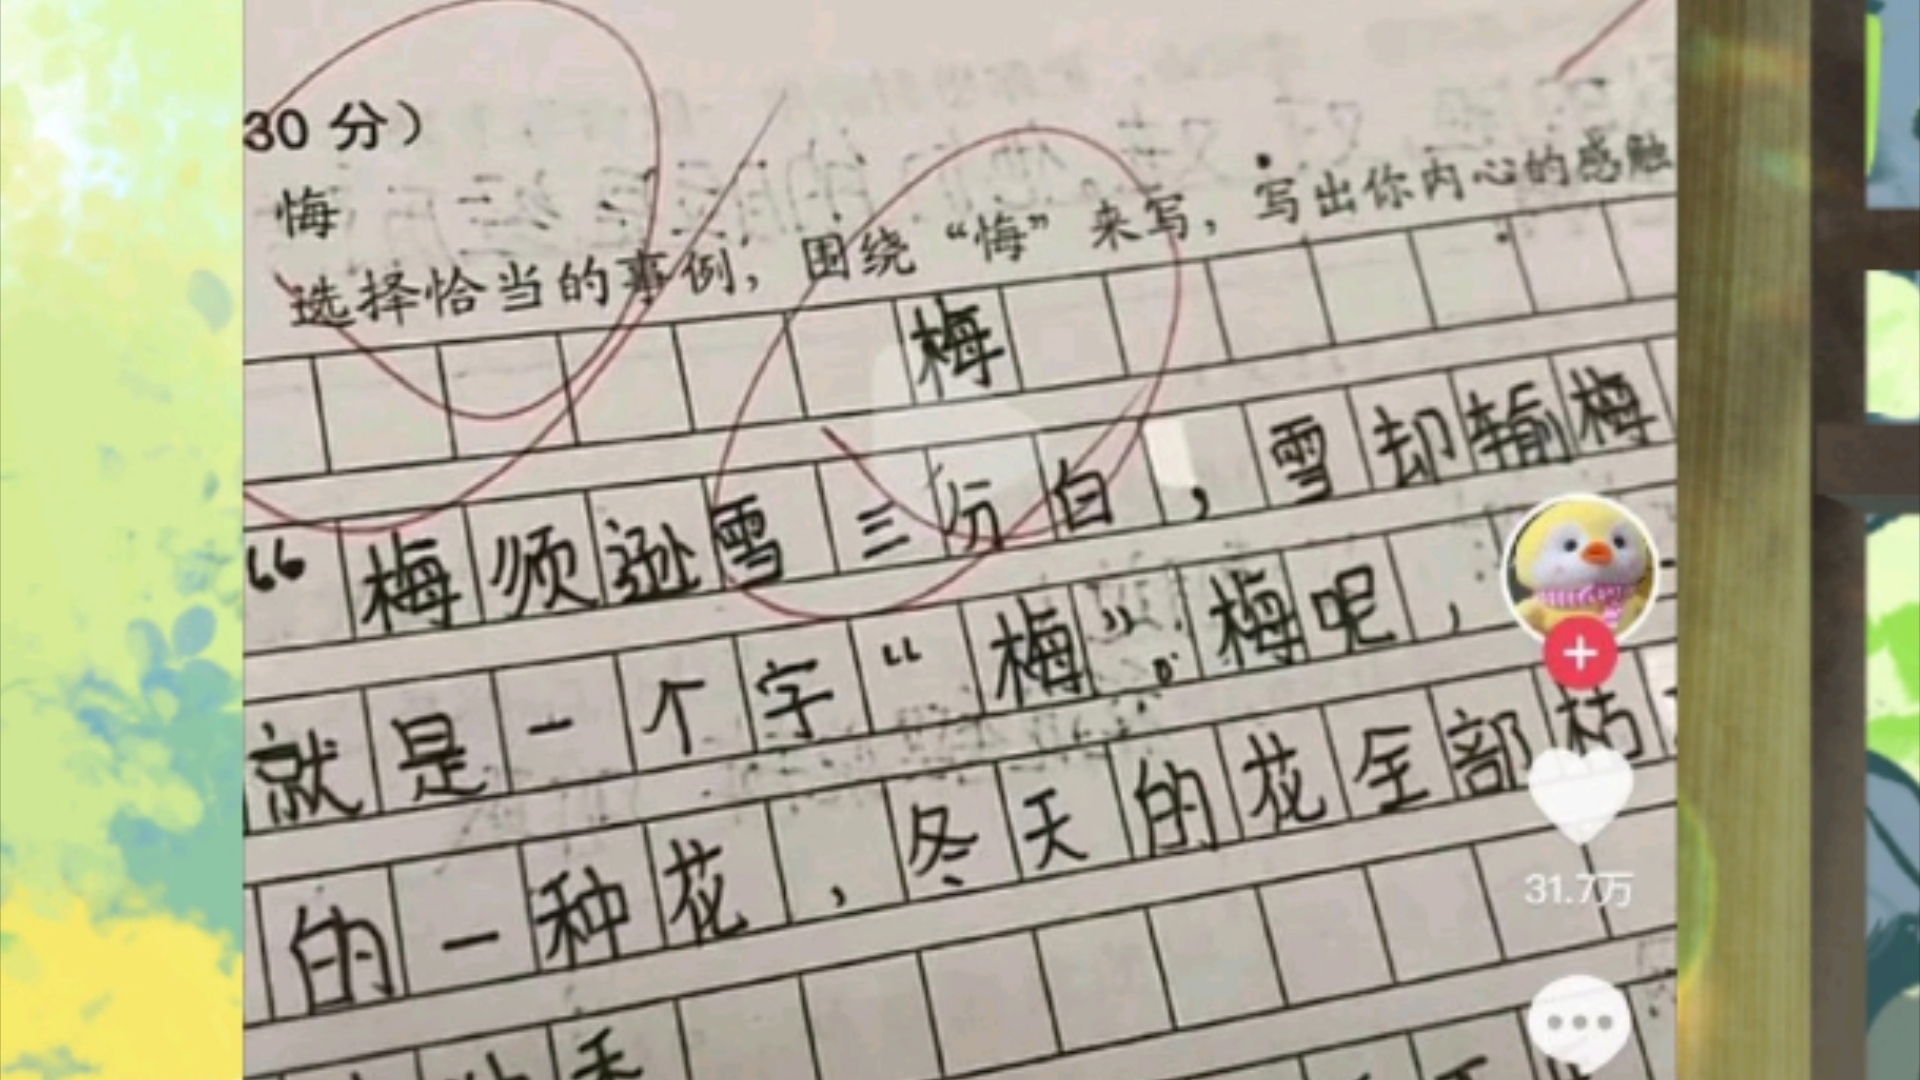 30 分）
悔
选择恰当的事例，围绕“悔”来写，写出你内心的感触
梅
“梅须逊雪三分白，雪却输梅
就是一个字“梅”。梅呢，
的一种花，冬天的花全部枯
香
31.7万